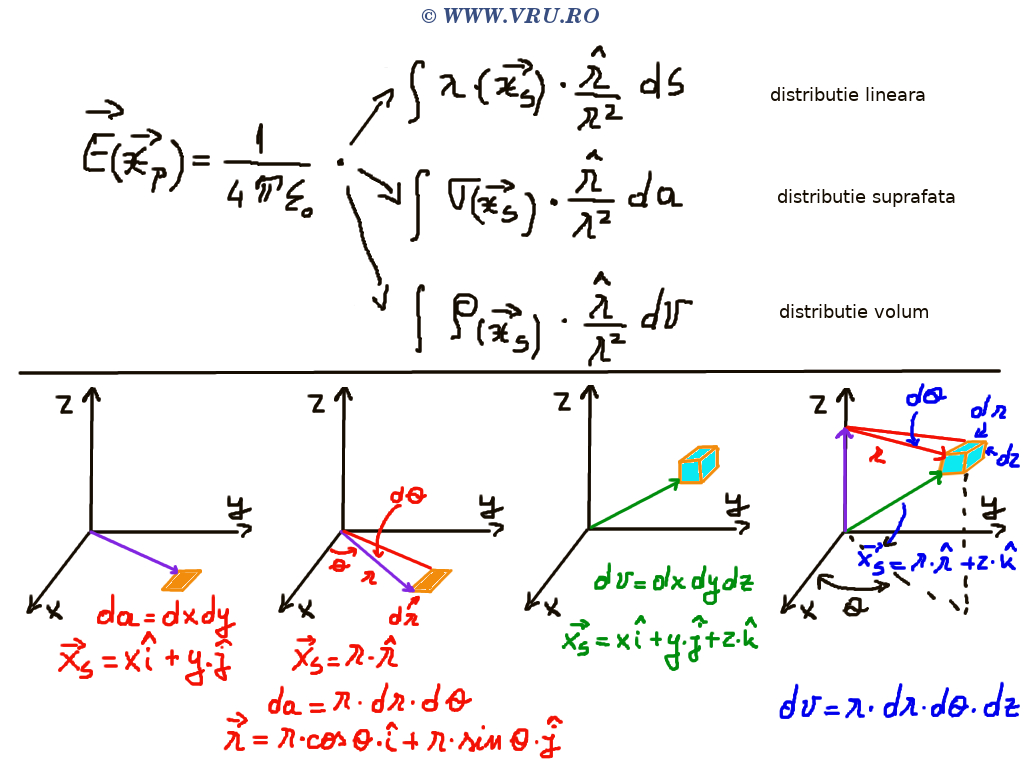 © WWW.VRU.RO
∫ λ·(x⃗s) · r̂/r² ds distributie lineara
E⃗(x⃗p) = 1/4πε₀ ·
∫ σ(x⃗s) · r̂/r² da distributie suprafata
∫ ρ(x⃗s) · r̂/r² dv distributie volum
z y x
da = dxdy
x⃗s = xî + y·ĵ
z y x
dθ
θ r
dr̂
x⃗s = r·r̂
da = r·dr·dθ
r⃗ = r·cosθ·î + r·sinθ·ĵ
z y x
dv = dxdydz
x⃗s = xî + y·ĵ + z·k̂
z y x
dθ dr
r dz
x⃗s = r·r̂ + z·k̂
θ
dv = r·dr·dθ·dz